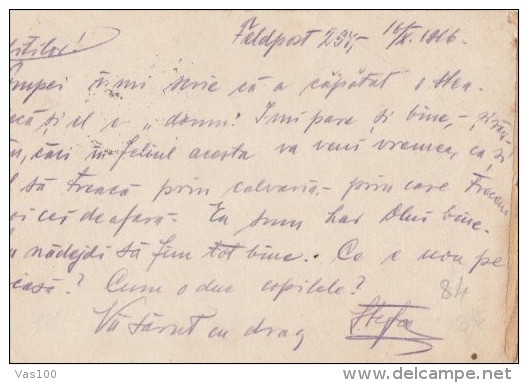 Feldpost 234,- 16/X. 1916.
Pompei îmi scrie că a căpătat o Stea.
că și el e „domn! Îmi pare și bine, -
căci în felul acesta va veni vremea, ca și
să treacă prin calvaria,- prin care trecem
noi cei de afară- Eu sunt har Dlui bine.
nădejdi să fim tot bine. Ce e nou pe
acasă? Cum o duc copilele?
84
Vă sărut cu drag Stefa
Vas100
delcampe.net